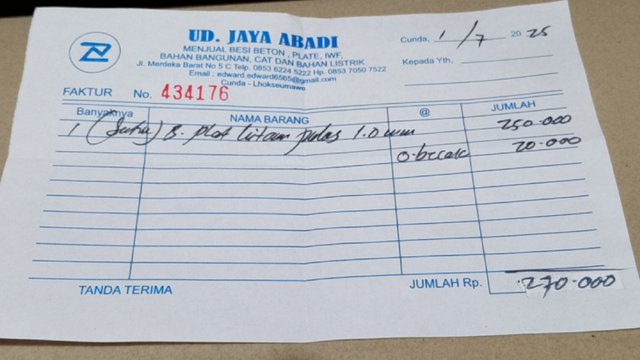 UD. JAYA ABADI
MENJUAL BESI BETON , PLATE, IWF,
BAHAN BANGUNAN, CAT DAN BAHAN LISTRIK
Jl. Merdeka Barat No 5 C Telp. 0853 6224 5222 Hp. 0853 7050 7522
Email : edward.edward6565@gmail.com
Cunda - Lhokseumawe
Cunda, 1/7 2025
Kepada Yth,
FAKTUR No. 434176
Banyaknya NAMA BARANG @ JUMLAH
1 (Satu) B. plat hitam pulas 1.0 mm 250.000
O.becak 20.000
TANDA TERIMA JUMLAH Rp. 270.000